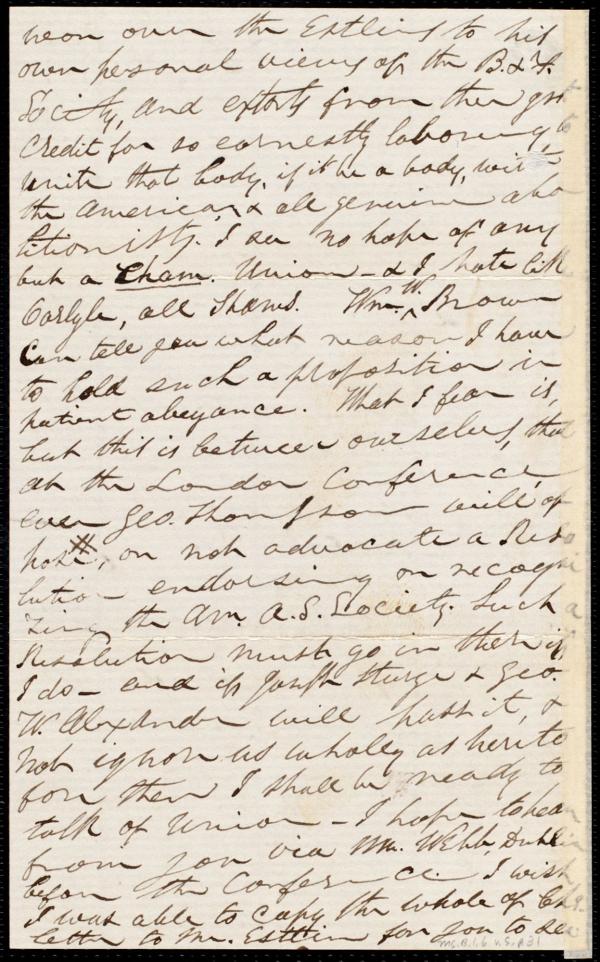 neon over the Estlins to his
own personal views of the B. & F.
Society, and extorts from them grt
credit for so earnestly laboring to
unite that body, if it be a body, with
the American & all genuine abo
litionists. I see no hope of any
but a Cham. Union - & I hate like
Carlyle, all Shams. Wm. W. Brown
can tell you what reason I have
to hold such a proposition in
patient abeyance. What I fear is,
but this is between ourselves, that
at the London Conference,
even Geo. Thompson will op
pose #, or not advocate a Reso
lution endorsing or recogni
zing the Am. A. S. Society. Such a
Resolution must go in there if
I do - and if Joseph Sturge & Geo.
W. Alexander will pass it, &
not ignore us wholly as hereto
fore then I shall be ready to
talk of Union - I hope to hear
from you via Mr. Webb, Dublin
before the Conference. I wish
I was able to copy the whole of
letter to Mr. Estlin for you to see
Ms. B.1.6 v.5, p.31